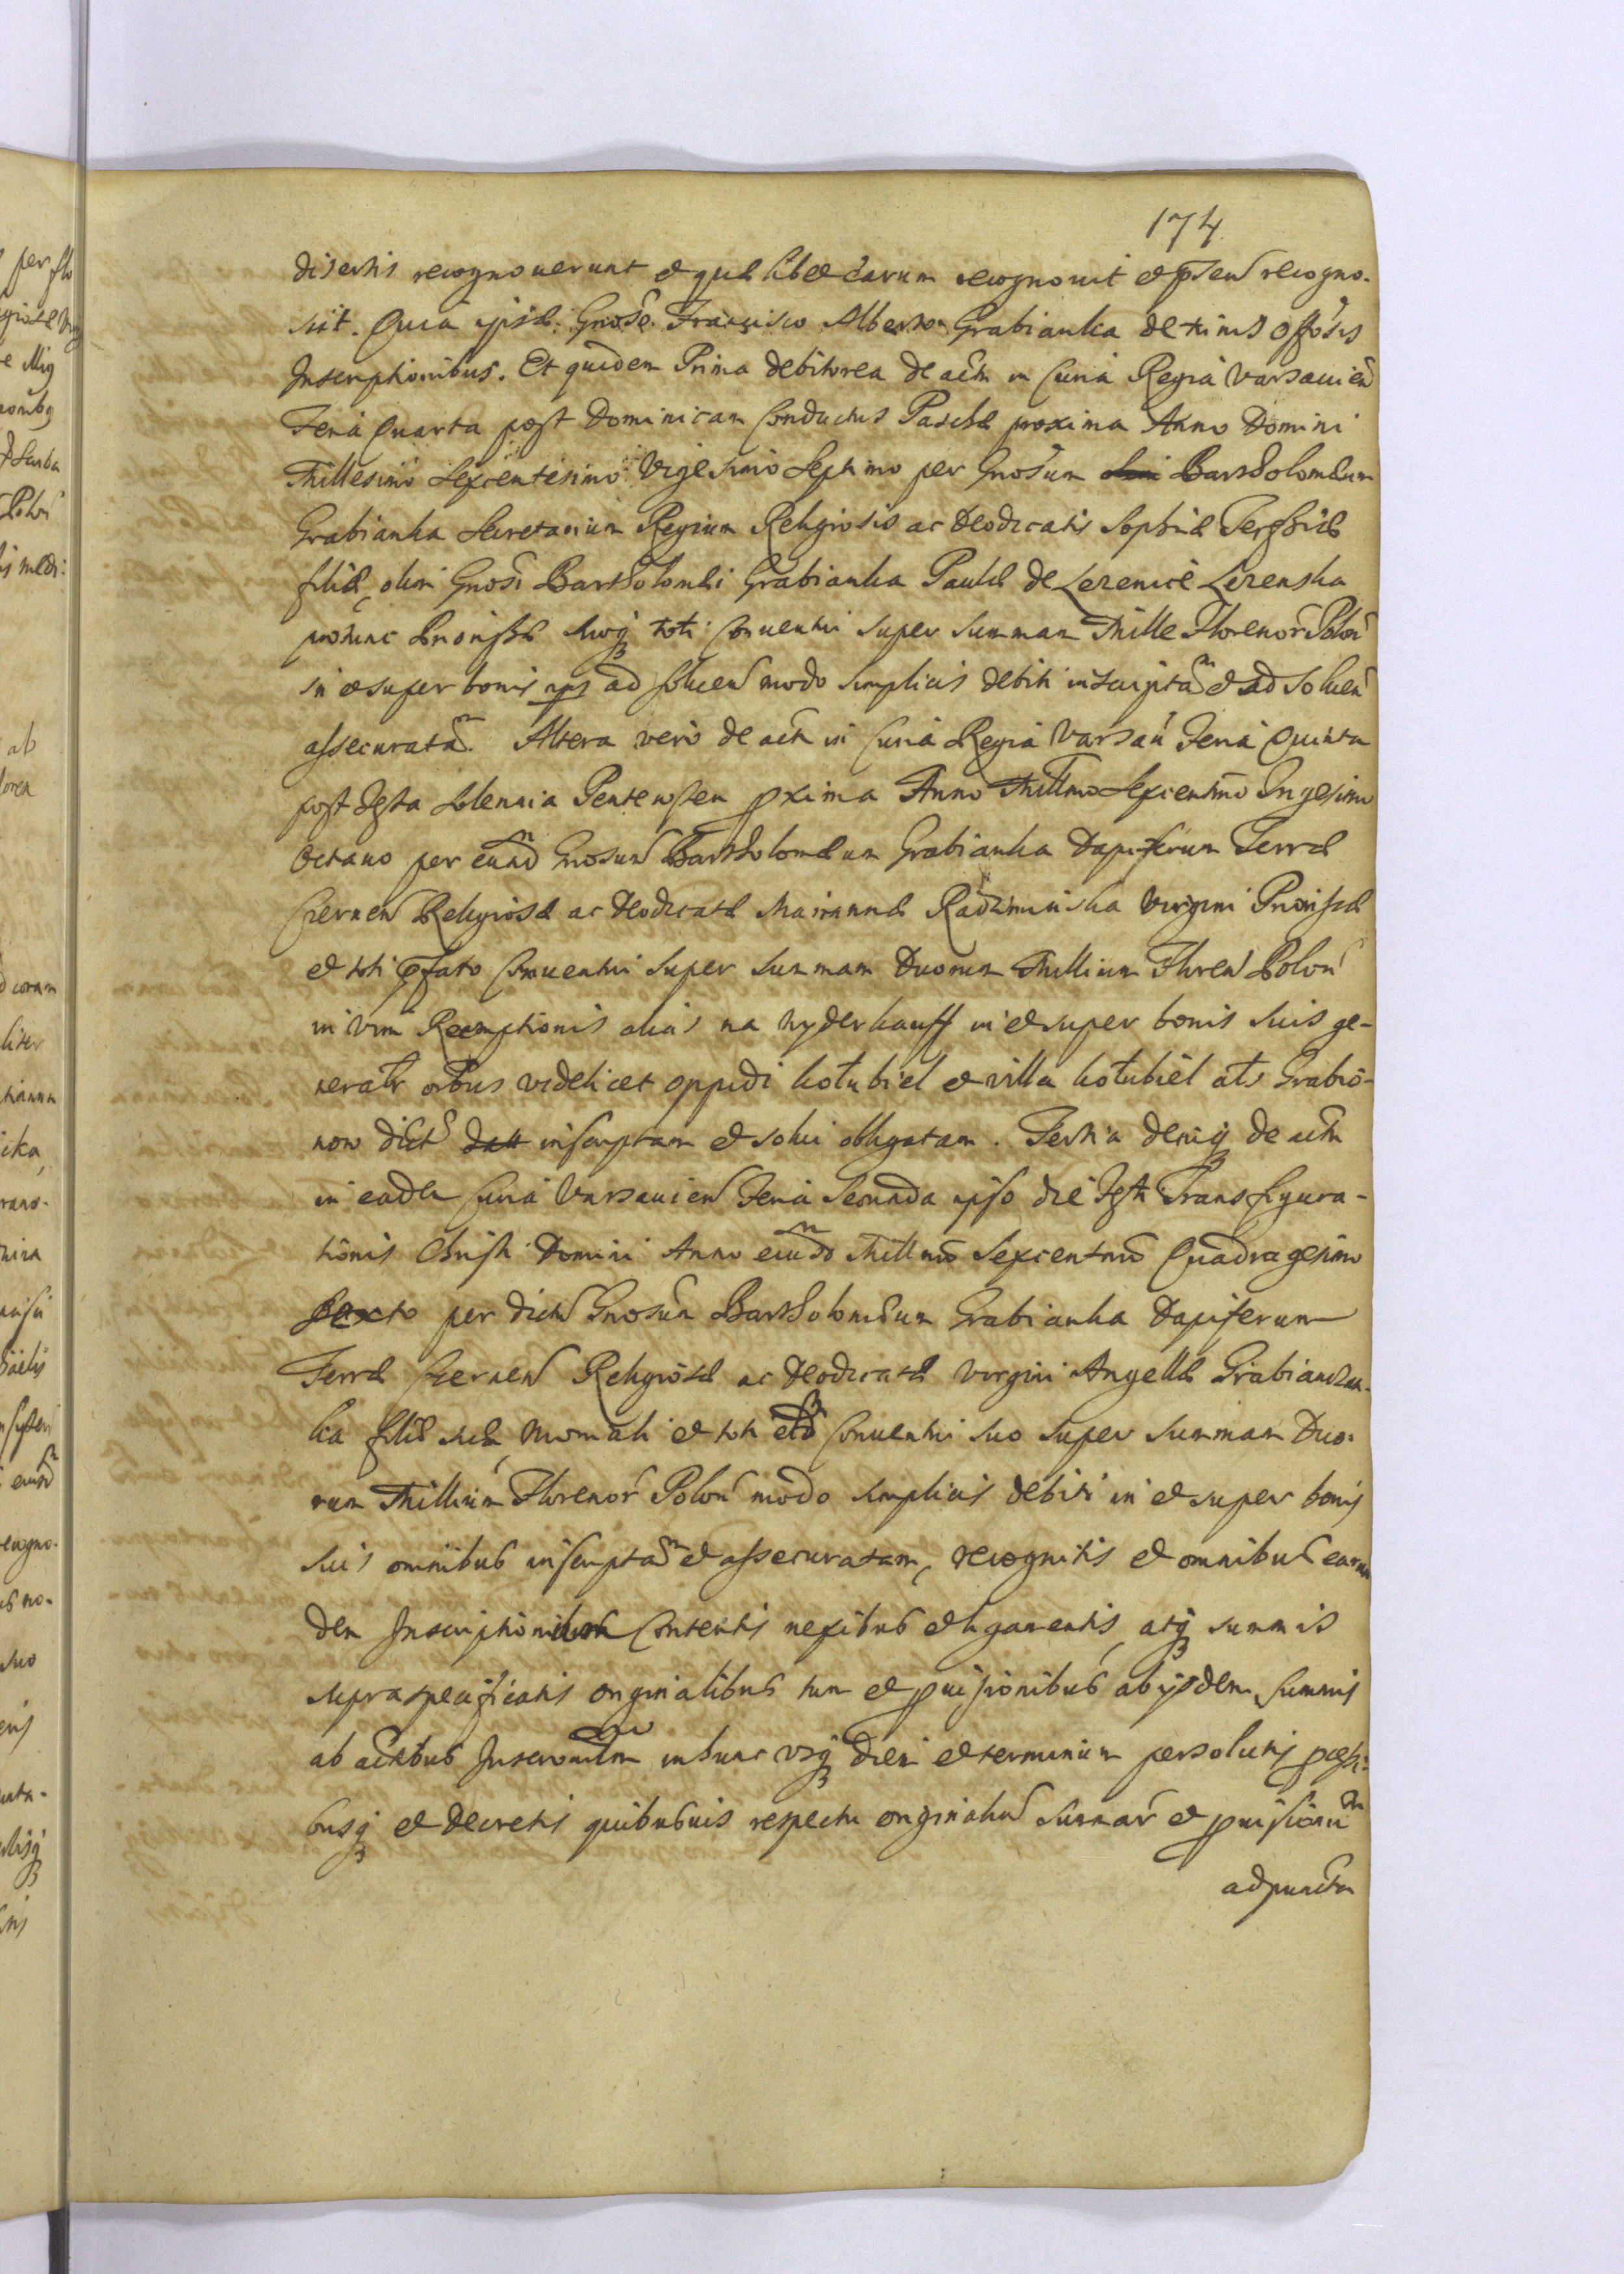 174
disertis recognoverunt et quælibet earum recognovit et pñtẽ recogno-
scit. Quia ipsæ Gnose Francisco Alberto Grabianka de trinis
Inscriptionibus. Et quidem Prima debitorea de actu in Curia Regia Varsavieñ
Feria Quarta post Dominicam Conductus Paschæ proxima Anno Domini
Millesimo Sexcentesimo Vigesimo Septimo per Gnosum Bartholomæum
Grabianka Secretarium Regium Religiosis ac Deodicatis Sophiæ Terssiæ
filiæ, olim Gnosi Bartholomæi Grabianka Paulæ de Lezenice Lezenska
pronunc Priorissæ suoq toti Conventui super summam Mille Florenor Polon
in et super bonis ad solveñ modo simplicis debiti inscriptam et ad solveñ
assecuratam. Altera vero de actu in Curia Regia Varsaũ Feria Quinta
post Festa Solennia Pentecosten pxima Anno Millmo Sexcentmo Vigesimo
Octavo per eund Gnosum Bartholomæum Grabianka Dapiferum Terræ
Czerneñ Religiosæ ac Deodicatæ Mariannæ Radziminska Virgini Priorissæ
et toti pfato Conventui super summam Duorum Millium Floreñ Poloñ
in vim Reemptionis alias na wyderkauff in et super bonis suis ge-
neralr oibus videlicet oppidi Kołubiel et villa Kołubiel als Grabio-
now dict inscriptam et solvi obligatam. Tertia deniq de actu
in eadem Curia Varsavieñ Feria Secunda ipso die Festi Transfigura-
tionis Christi Domini Anno eiusd Millmo Sexcentmo Quadragesimo
Sexto per dictũ Gnosum Bartholomæum Grabianka Dapiferum
Terræ Czerneñ Religiosæ ac Deodicatæ Virgini Angellæ Grabianczan-
ka filiæ suæ, Moniali et toti Conventui suo super summam Duo-
rum Millium Florenor Polon modo simplicis debiti in et super bonis
suis omnibus inscriptam et assecuratam, recognitis et omnibus earun
dem Inscriptionibus Contentis nexibus et ligamentis, atq summis
supraspecificatis originalibus tum et puisionibus ab ijsdem summis
ab actibus Inscrõnum inhunc usq diem et terminum persolutis
busq et decretis quibusvis respectu originaliũ Summar et puisionũ
ad puncta